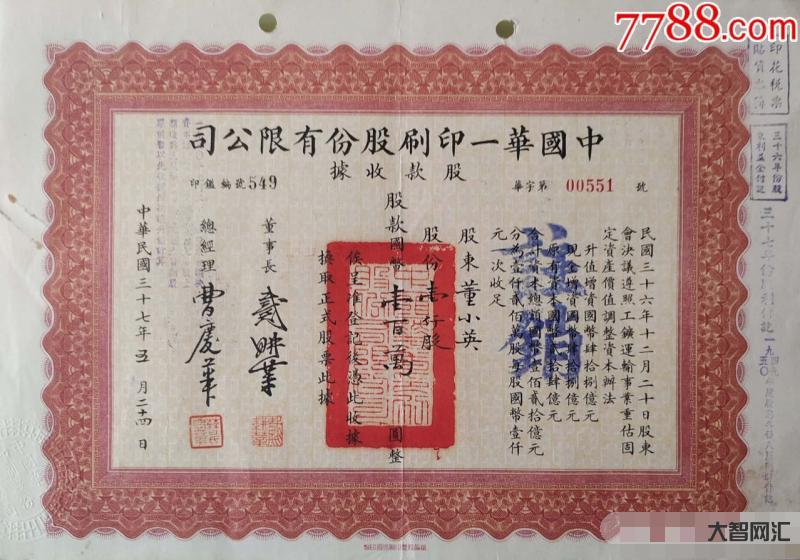 7788.com
中國華一印刷股份有限公司
股款收據
華字第 00551 號
印鑑編號 549
民國三十六年十二月二十日股東
會決議遵照工鑛運輸事業重估固
定資產價值調整資本辦法
升值增資國幣肆拾捌億元
現金增資國幣肆拾捌億元
原有資本國幣貳拾肆億元
合計資本總額國幣壹佰貳拾億元
分為壹仟貳佰萬股每股國幣壹仟
元一次收足
股東董小英
股份壹仟股
股款國幣壹百萬圓整
俟呈准登記後憑此收據
換取正式股票此據
董事長
總經理 曹慶華
中華民國三十七年五月二十四日
印花稅票
三十六年份股
大智网汇